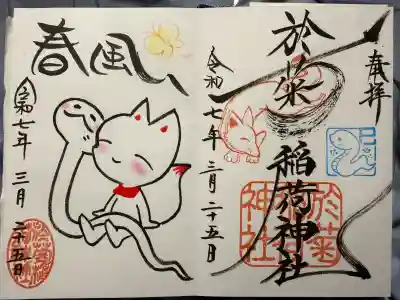 奉拝
於菊稲荷神社
令和七年三月二十五日
於菊
稲荷
神社
春風
令和七年三月二十五日